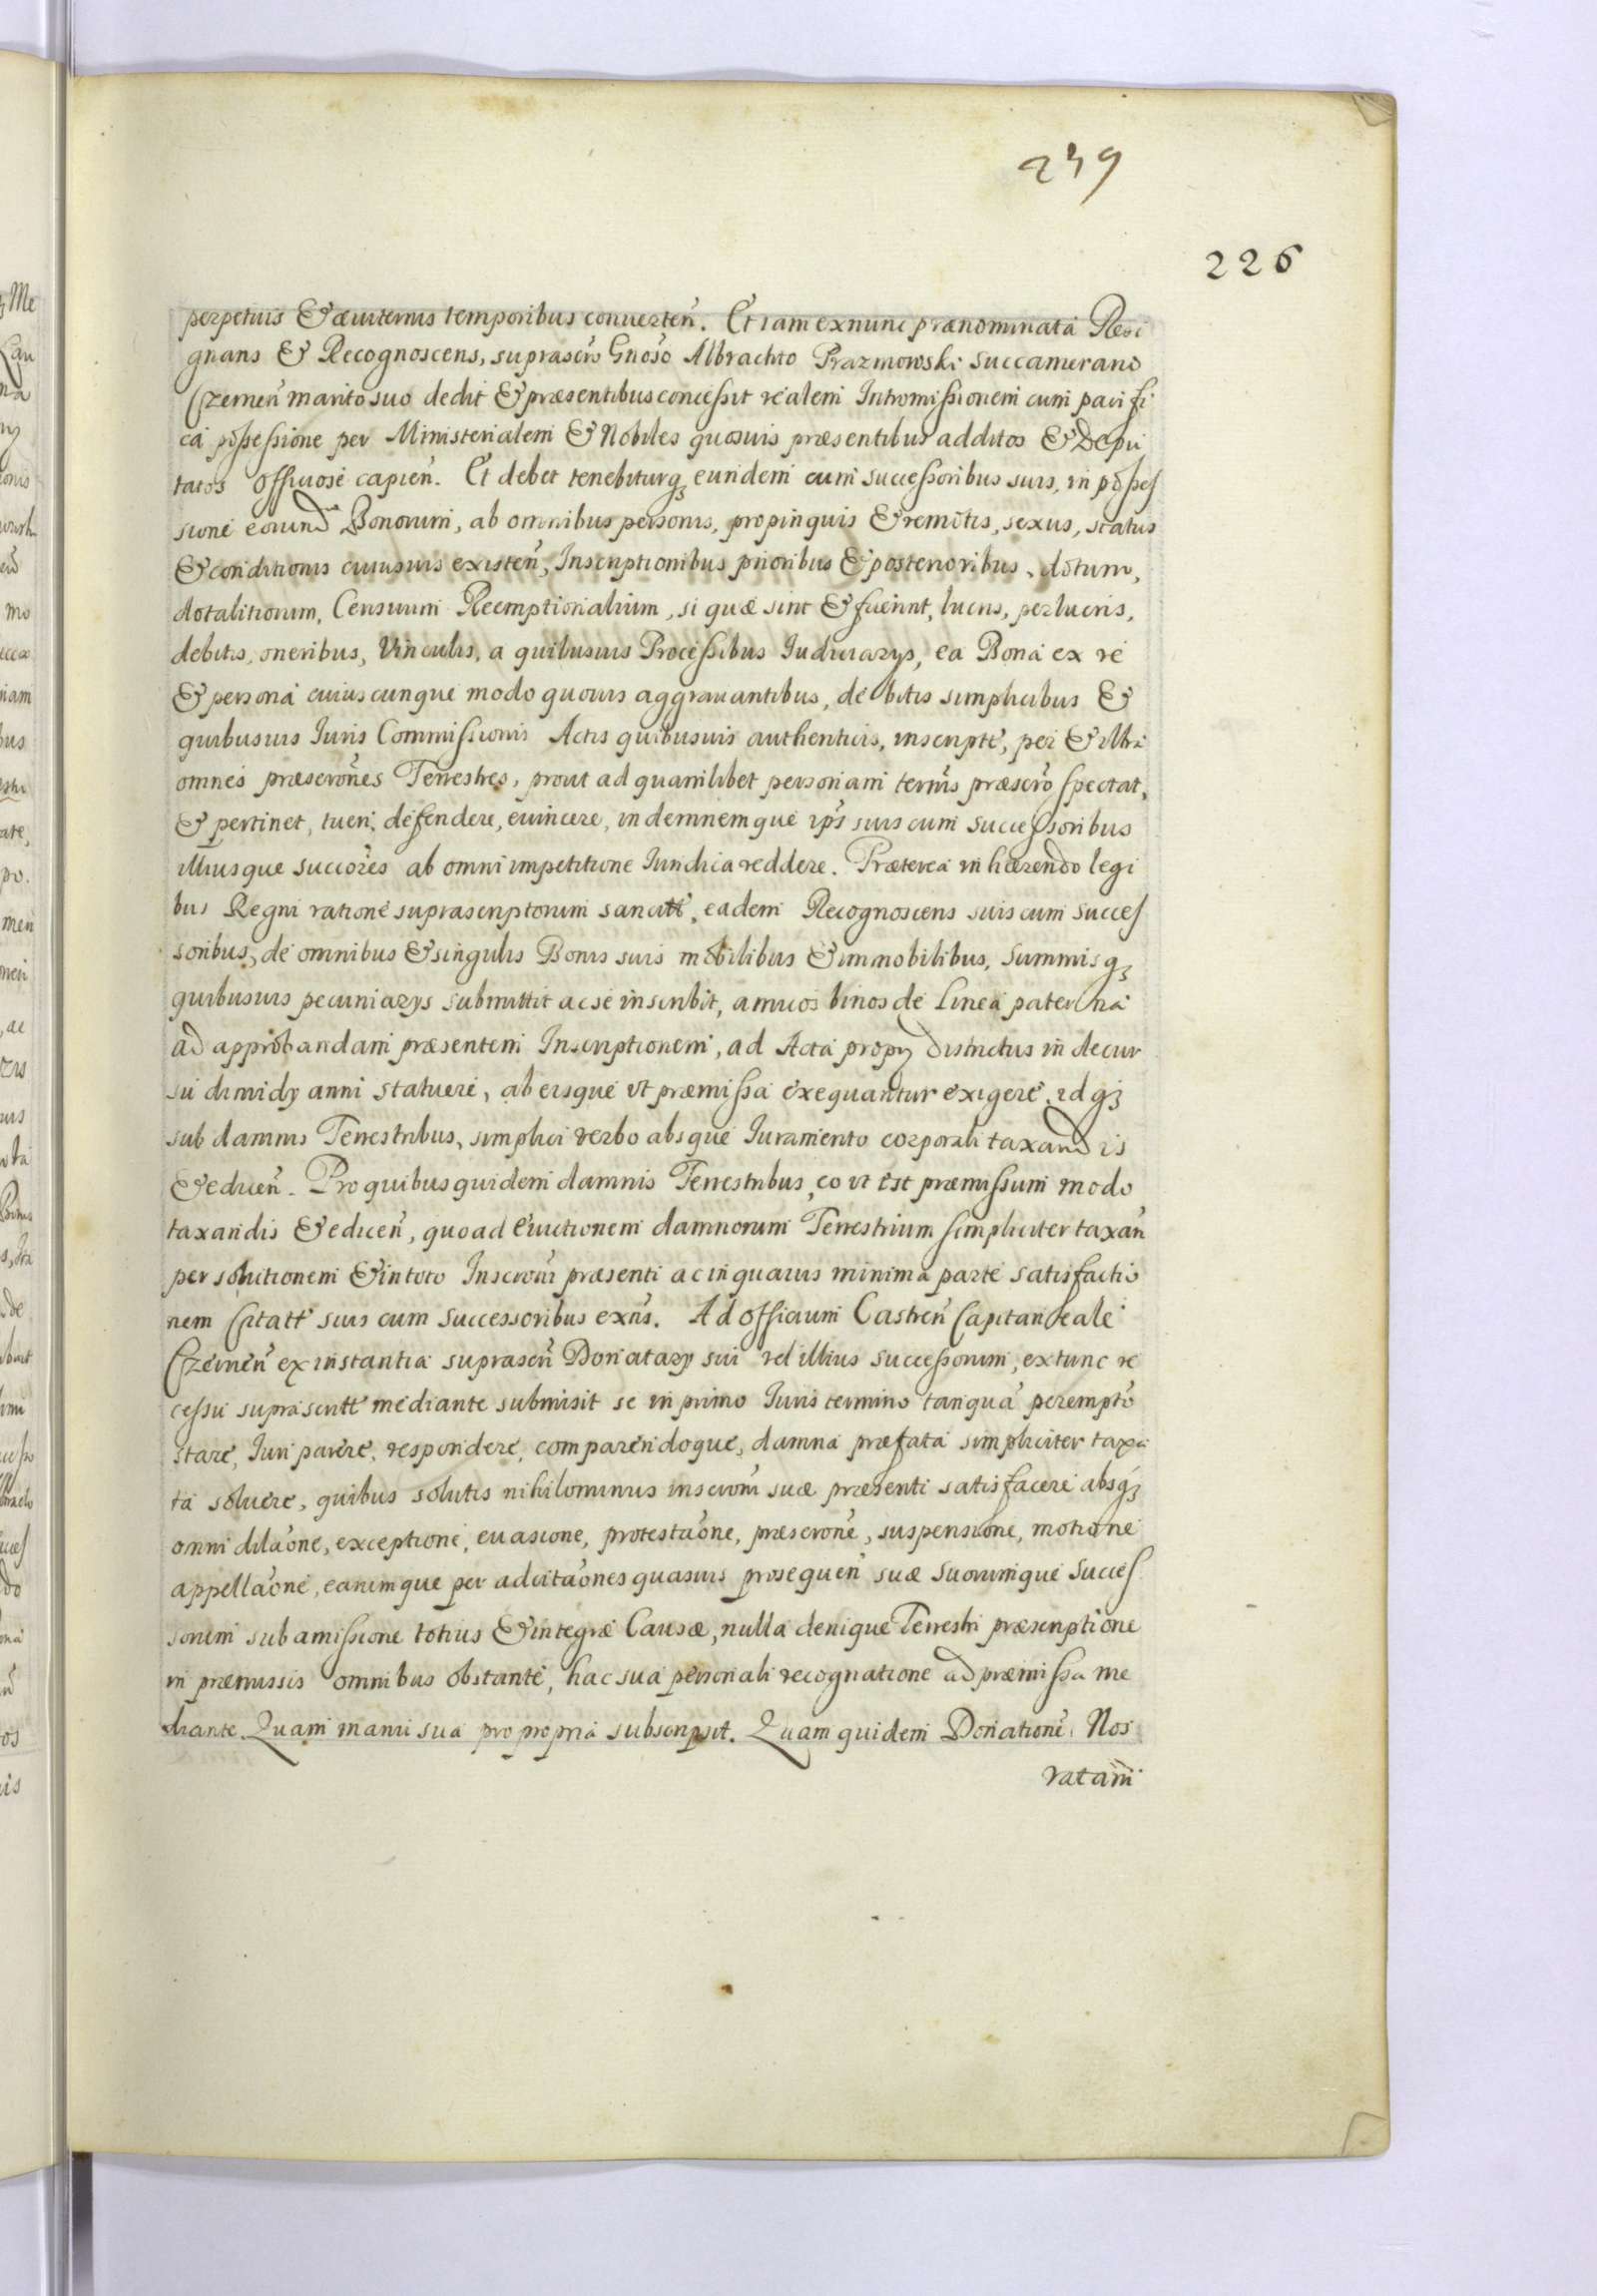 239
226
perpetuis & æuiternis temporibus conuerteñ. Et iam exnunc prænominata Resi
gnans & Recognoscens, suprascr̃o Gnoso Albrachto Prazmowski Succamerario
Czerneñ marito suo dedit & præsentibus concessit realem Intromissionem cum pacifi
ca possessione per Ministerialem & Nobiles quosuis præsentibus additos & Depu
tatos officiose capieñ. Et debet tenebiturq; eundem cum successoribus suis, in posses
sione eorund Bonorum, ab omnibus personis, propinquis & remotis, sexus, status
& conditionis cuiusuis existeñ, Inscriptionibus prioribus & posterioribus, dotum,
dotalitiorum, Censuum Reemptionalium, si quæ sint & fuerint, lucris, perlucris,
debitis, oneribus, Vinculis, a quibusuis Processibus Iudiciarys, ea Bona ex re
& persona cuiuscunque modo quouis aggrauantibus, debitis simplicibus &
quibusuis Iuris Commissionis Actis quibusuis authenticis, inscriptt, per & vltra
omnes præscrõnes Terrestres, prout ad quamlibet personam terñis præscr̃o spectat,
& pertinet, tueri, defendere, euincere, indemnemque ip̃s suis cum Successoribus
illiusque succores ab omni impetitione Iuridica reddere. Præterea inhærendo legi
bus Regni ratione suprascriptorum sancitt, eadem Recognoscens suis cum succes
soribus, de omnibus & singulis Bonis suis mobilibus & immobilibus, Summisq;
quibusuis pecuniarys submittit ac se inscribit, amicos binos de Linea paterna
ad approbandam præsentem Inscriptionem, ad Acta propry districtus in decur
su dimidy anni statuere, ab eisque vt præmissa exequantur exigere, idq;
sub damnis Terrestribus, simplici verbo absque Iuramento corporali taxandis
& ediceñ. Pro quibus quidem damnis Terrestribus, eo vt est præmissum modo
taxandis & ediceñ, quoad euictionem damnorum Terrestrium simpliciter taxañ
persolutionem & in toto Inscrõni præsenti ac in quauis minima parte satisfactio
nem Citatt suis cum successoribus exñs. Ad officium Castreñ Capitaneale
Czerneñ ex instantia suprascrñ Donatary sui vel illius successorum, extunc re
cessu suprascritt mediante submisit se in primo Iuris termino tanquã perempto
stare, Iuri parere, respondere, comparendoque, damna præfata simpliciter taxa
ta soluere, quibus solutis nihilominus inscrõni suæ præsenti satisfacere absq;
omni dilaõne, exceptione, euasione, protestaõne, præscrõne, suspensione, motione
appellaõne, earumque per adcitaõnes quasuis prosequeñ suæ suorumque succes
sorum sub amissione totius & integræ Causæ, nulla denique Terrestri præscriptione
in præmissis omnibus obstante, hac sua personali recognitione ad præmissa me
diante. Quam manu sua propropria subscripsit. Quam quidem Donationẽ Nos
ratam